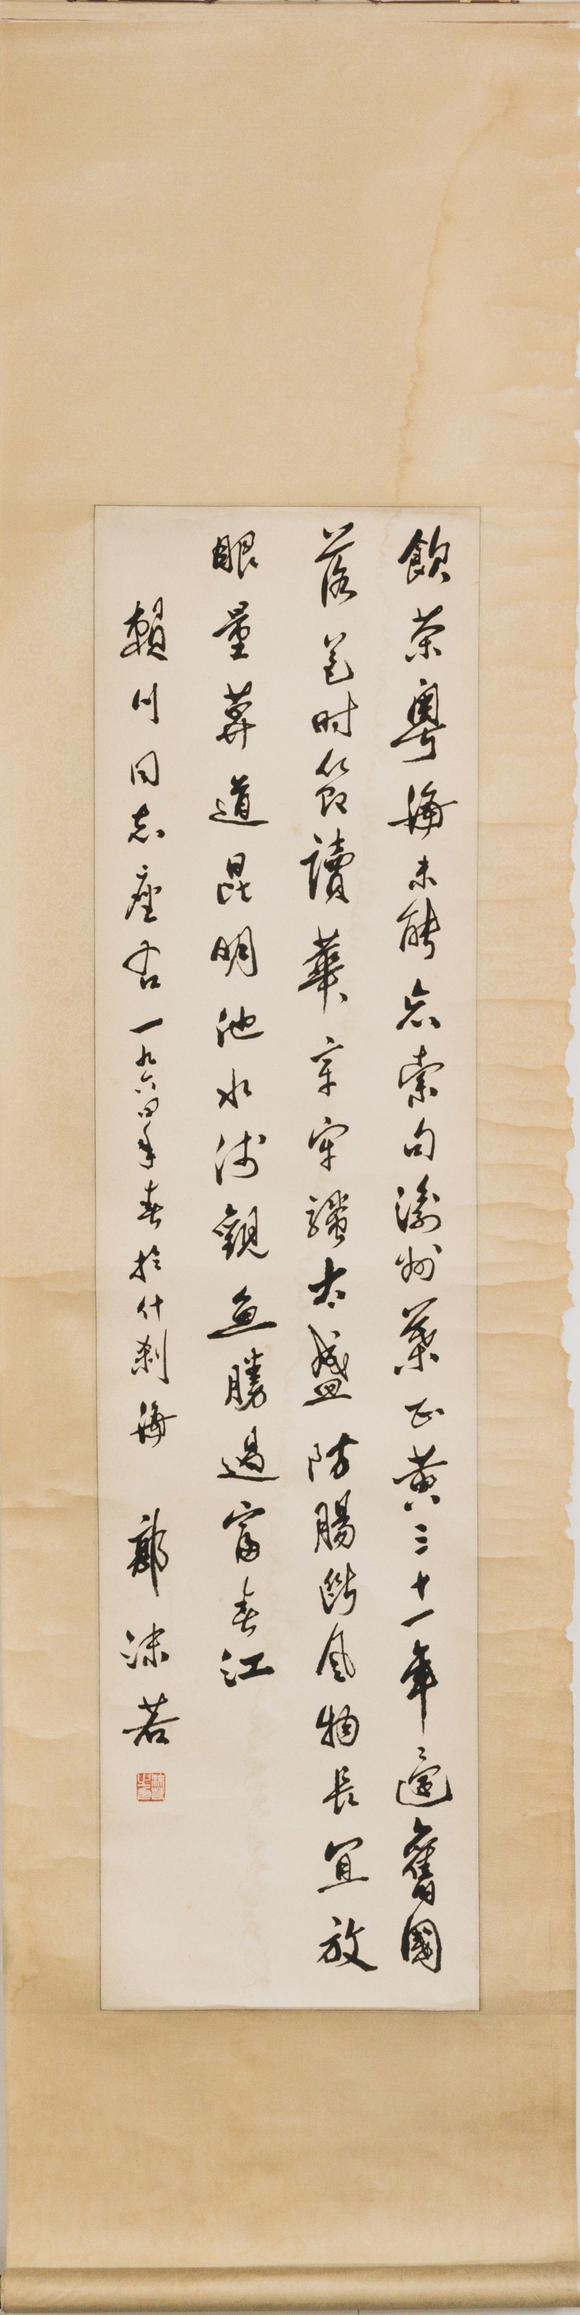 飲茶粵海未能忘索句渝州葉正黃三十一年還舊國
落花時節讀華章牢騷太盛防腸斷風物長宜放
眼量莫道昆明池水淺觀魚勝過富春江
賴川同志座右一九六四年春於什剎海 郭沫若